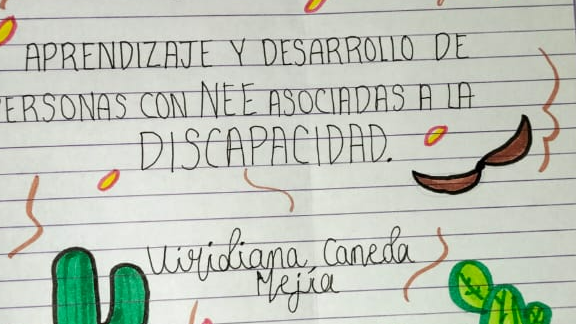 APRENDIZAJE Y DESARROLLO DE
PERSONAS CON NEE ASOCIADAS A LA
DISCAPACIDAD.
Viridiana Caneda
Mejía